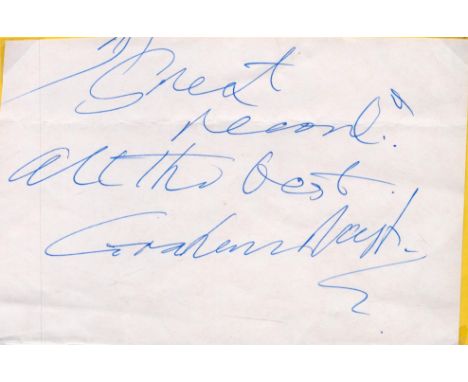 "Great
record."
All the best
Graham